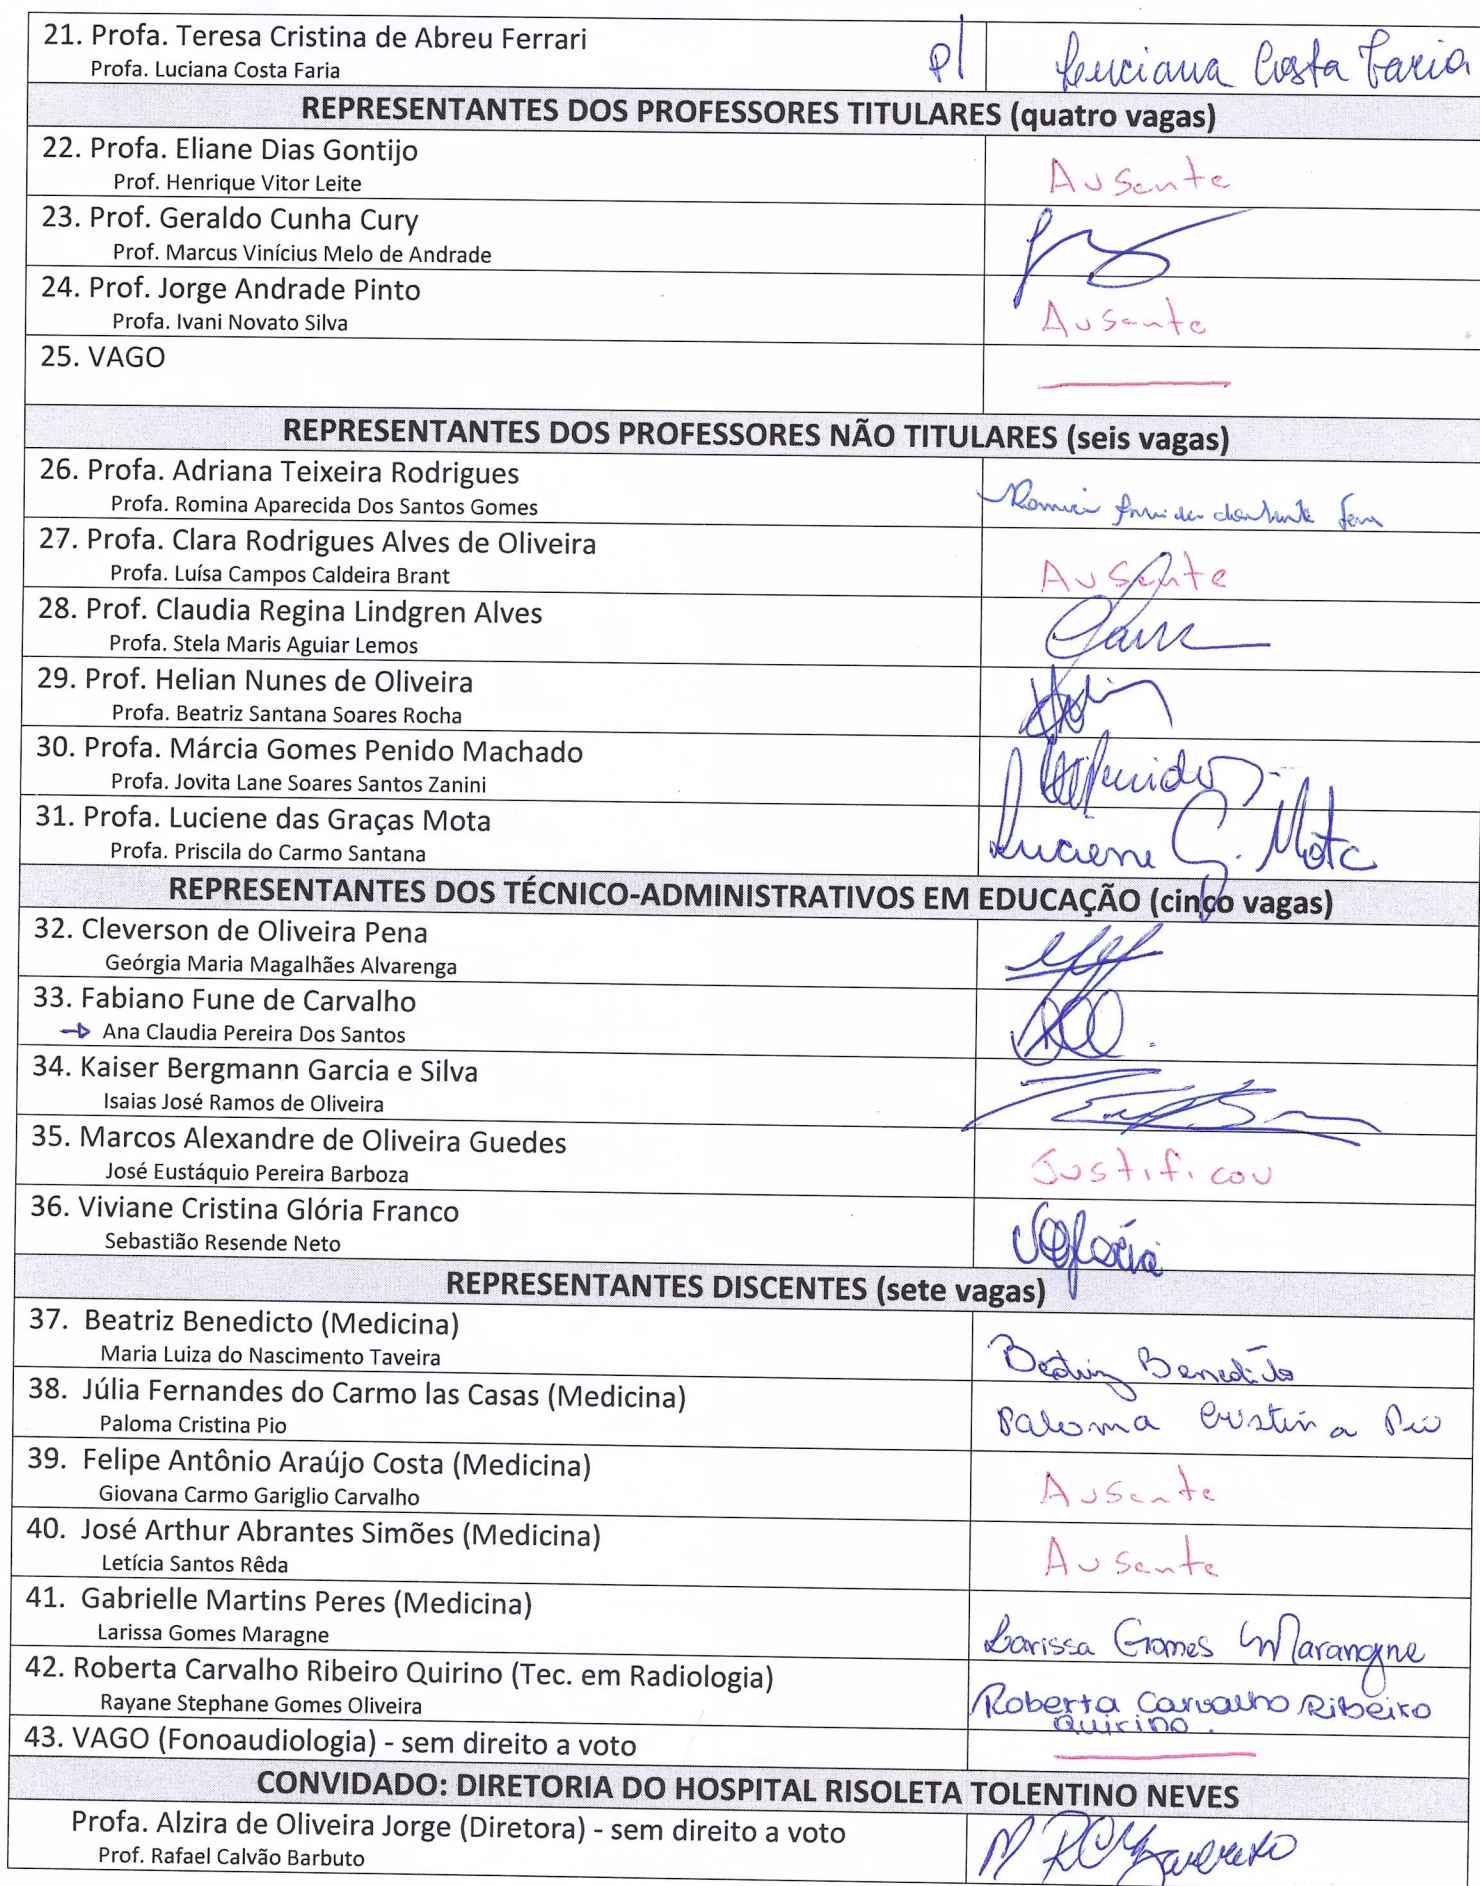 21. Profa. Teresa Cristina de Abreu Ferrari
Profa. Luciana Costa Faria
p/ Luciana Costa Faria
REPRESENTANTES DOS PROFESSORES TITULARES (quatro vagas)
22. Profa. Eliane Dias Gontijo
Prof. Henrique Vitor Leite
Ausente
23. Prof. Geraldo Cunha Cury
Prof. Marcus Vinícius Melo de Andrade
24. Prof. Jorge Andrade Pinto
Profa. Ivani Novato Silva
Ausente
25. VAGO
REPRESENTANTES DOS PROFESSORES NÃO TITULARES (seis vagas)
26. Profa. Adriana Teixeira Rodrigues
Profa. Romina Aparecida Dos Santos Gomes
27. Profa. Clara Rodrigues Alves de Oliveira
Profa. Luísa Campos Caldeira Brant
Ausente
28. Prof. Claudia Regina Lindgren Alves
Profa. Stela Maris Aguiar Lemos
29. Prof. Helian Nunes de Oliveira
Profa. Beatriz Santana Soares Rocha
30. Profa. Márcia Gomes Penido Machado
Profa. Jovita Lane Soares Santos Zanini
31. Profa. Luciene das Graças Mota
Profa. Priscila do Carmo Santana
Luciene G. Mota
REPRESENTANTES DOS TÉCNICO-ADMINISTRATIVOS EM EDUCAÇÃO (cinco vagas)
32. Cleverson de Oliveira Pena
Geórgia Maria Magalhães Alvarenga
33. Fabiano Fune de Carvalho
Ana Claudia Pereira Dos Santos
34. Kaiser Bergmann Garcia e Silva
Isaias José Ramos de Oliveira
35. Marcos Alexandre de Oliveira Guedes
José Eustáquio Pereira Barboza
Justificou
36. Viviane Cristina Glória Franco
Sebastião Resende Neto
REPRESENTANTES DISCENTES (sete vagas)
37. Beatriz Benedicto (Medicina)
Maria Luiza do Nascimento Taveira
Beatriz Benedicto
38. Júlia Fernandes do Carmo las Casas (Medicina)
Paloma Cristina Pio
Paloma Cristina Pio
39. Felipe Antônio Araújo Costa (Medicina)
Giovana Carmo Gariglio Carvalho
Ausente
40. José Arthur Abrantes Simões (Medicina)
Letícia Santos Rêda
Ausente
41. Gabrielle Martins Peres (Medicina)
Larissa Gomes Maragne
Larissa Gomes Marangne
42. Roberta Carvalho Ribeiro Quirino (Tec. em Radiologia)
Rayane Stephane Gomes Oliveira
Roberta Carvalho Ribeiro
Quirino.
43. VAGO (Fonoaudiologia) - sem direito a voto
CONVIDADO: DIRETORIA DO HOSPITAL RISOLETA TOLENTINO NEVES
Profa. Alzira de Oliveira Jorge (Diretora) - sem direito a voto
Prof. Rafael Calvão Barbuto